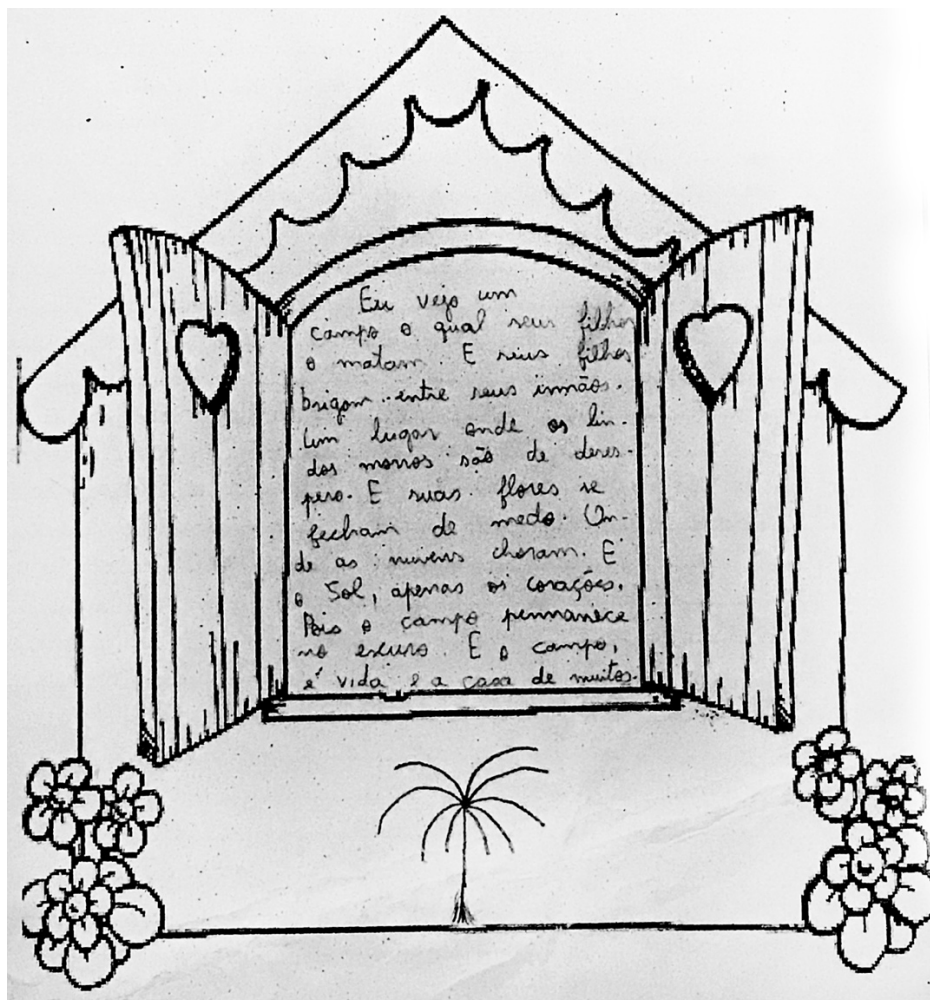 Eu vejo um
campo o qual seus filhos
o matam. E seus filhos
brigam entre seus irmãos.
Um lugar onde os lin-
dos morros são de deses-
pero. E suas flores se
fecham de medo. On-
de as nuvens choram. E
o Sol, apenas os corações.
Pois o campo permanece
no escuro. E o campo,
é vida e a casa de muitos.